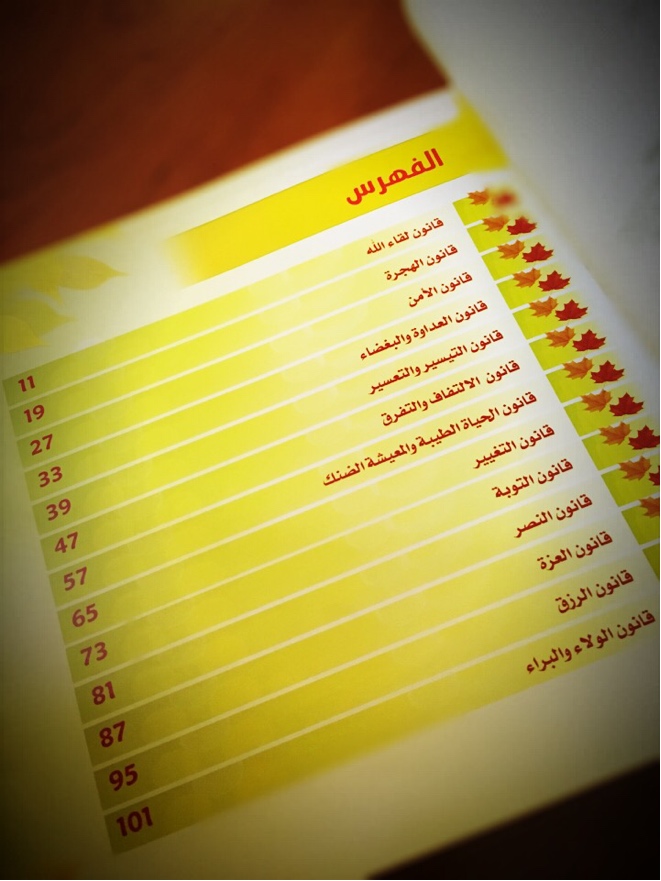 الفهرس
قانون لقاء الله 11
قانون الهجرة 19
قانون الأمن 27
قانون العداوة والبغضاء 33
قانون التيسير والتعسير 39
قانون الالتفاف والتفرق 47
قانون الحياة الطيبة والمعيشة الضنك 57
قانون التغيير 65
قانون التوبة 73
قانون النصر 81
قانون العزة 87
قانون الرزق 95
قانون الولاء والبراء 101